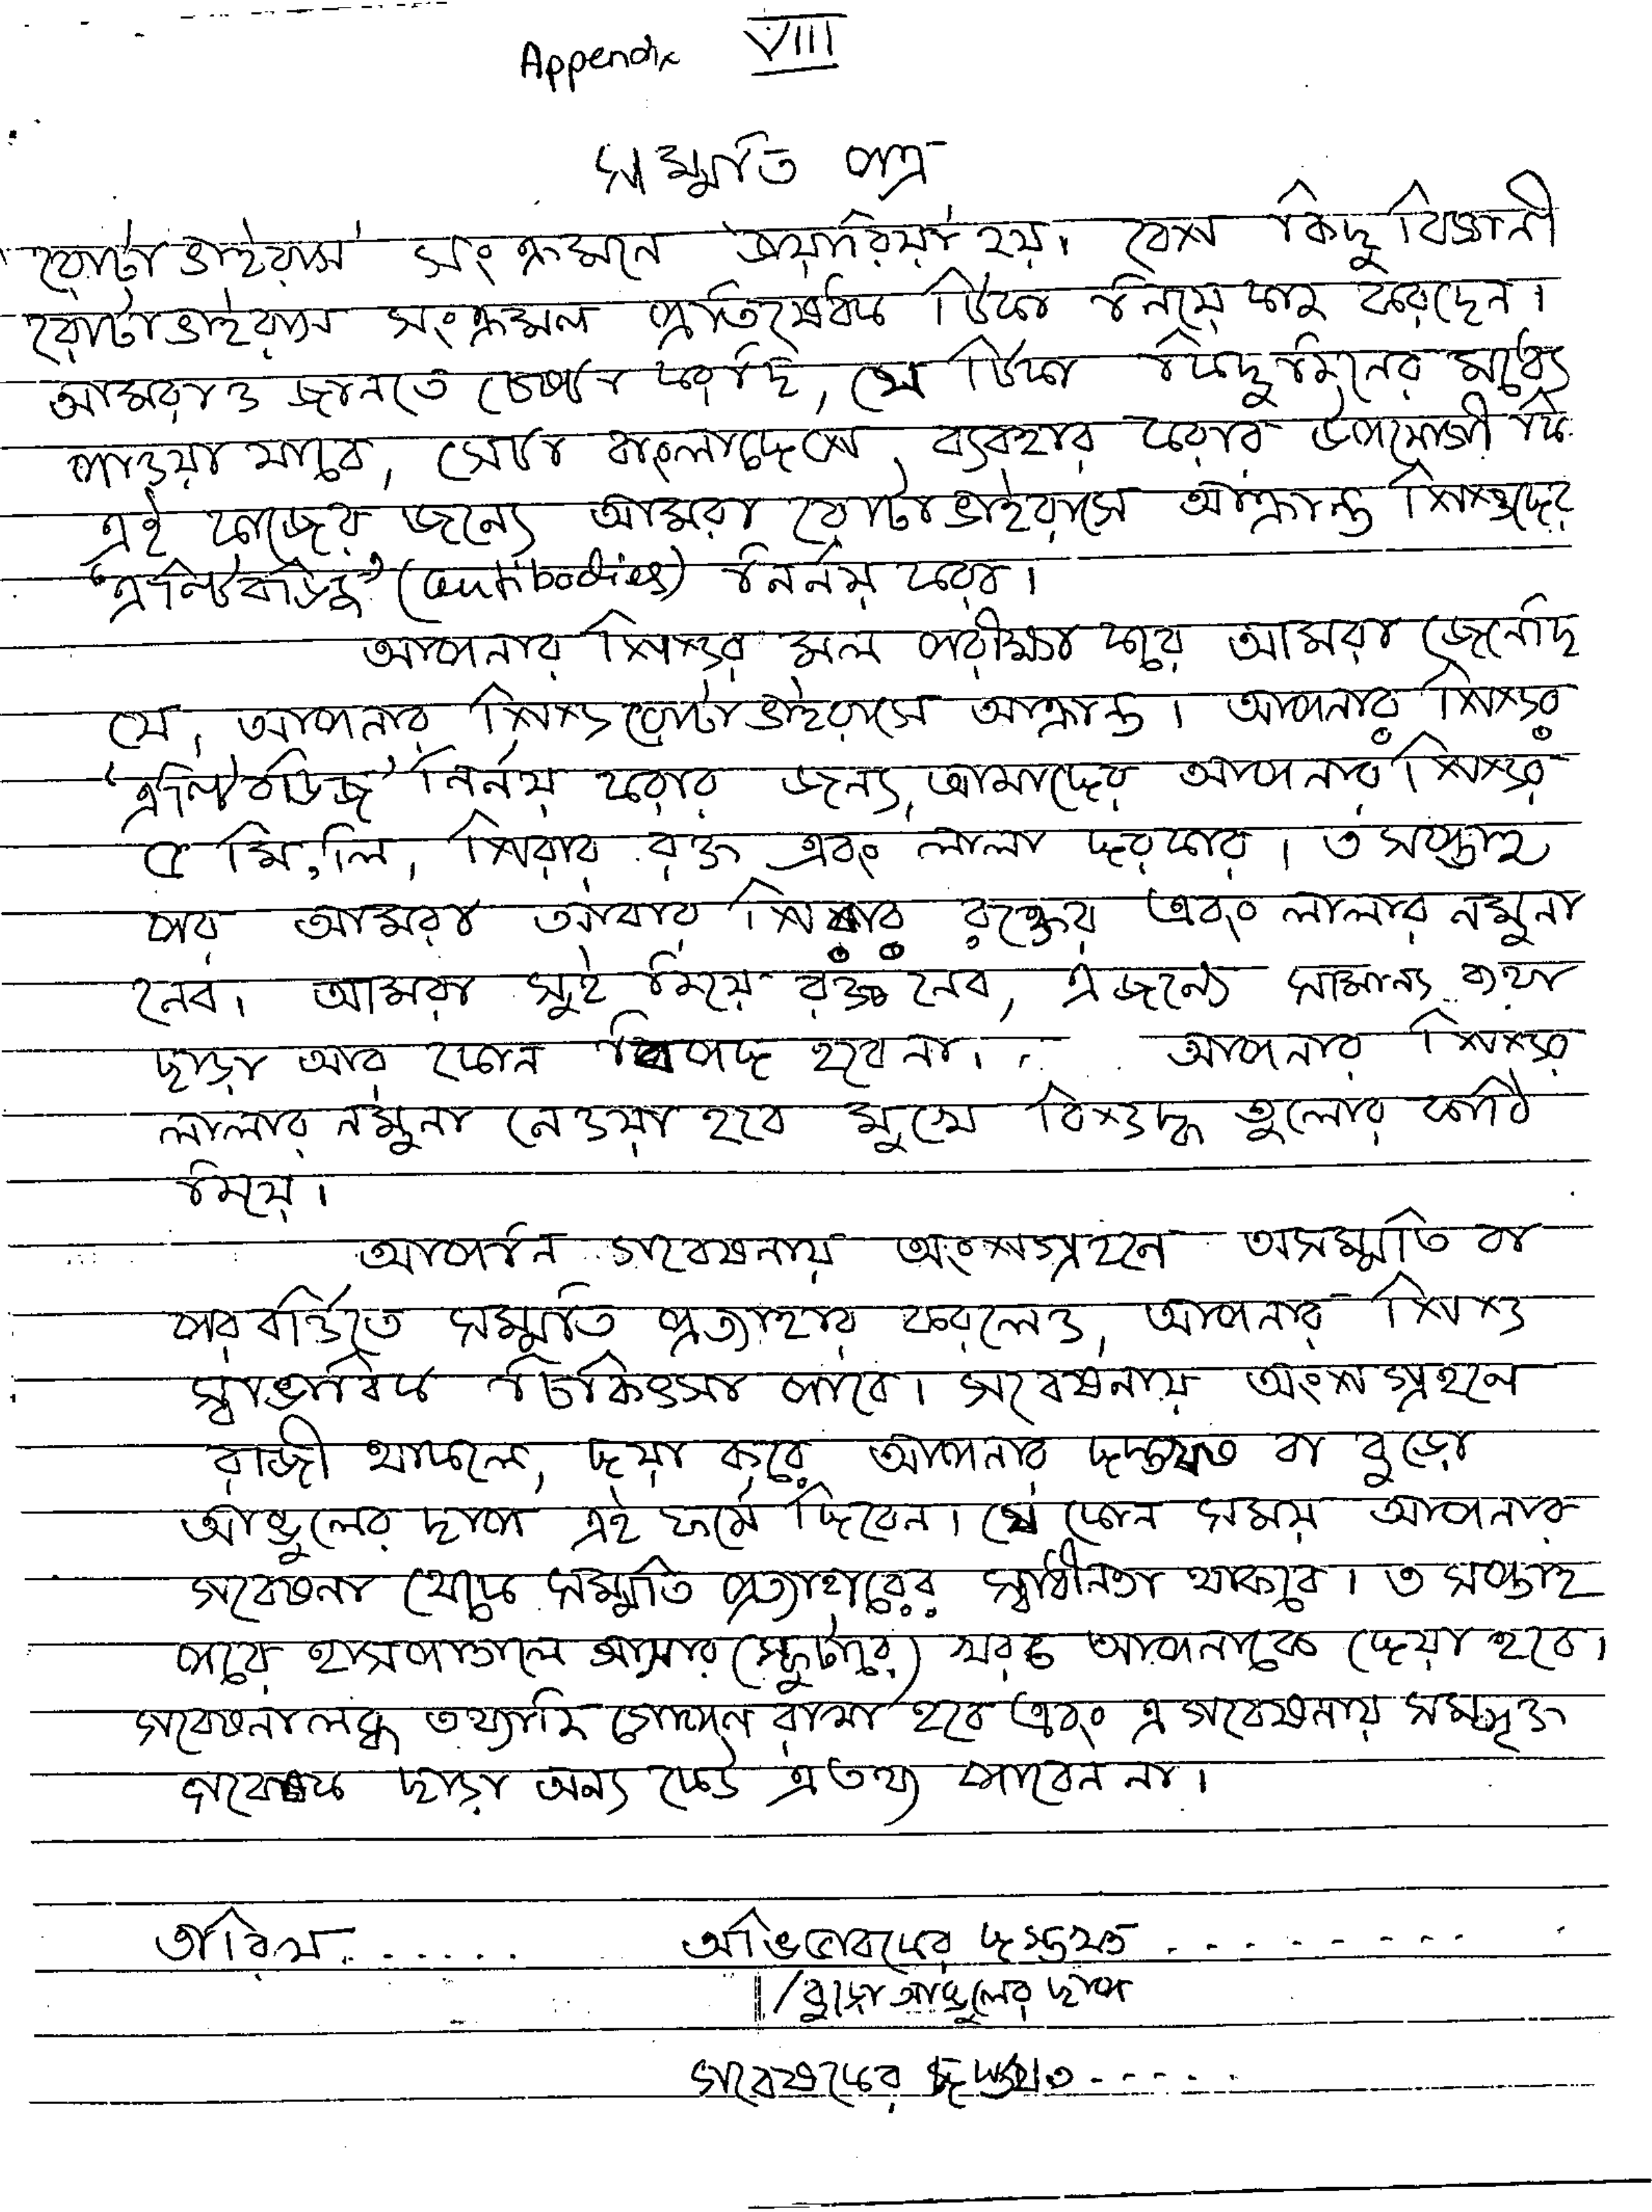 Appendix VIII
সম্মতি পত্র
রোটাভাইরাস সংক্রমনে ডায়রিয়া হয়। বেশ কিছু বিজ্ঞানী
রোটাভাইরাস সংক্রমন প্রতিষেধক টিকা নিয়ে কাজ করছেন।
আমরাও জানতে চেষ্টা করছি, যে টিকা কিছুদিনের মধ্যে
পাওয়া যাবে, সেটা বাংলাদেশে ব্যবহার করার উপযোগী কি
এই কাজের জন্যে আমরা রোটাভাইরাসে আক্রান্ত শিশুদের
'এন্টিবডিজ' (antibodies) নির্নয় করব।
আপনার শিশুর মল পরীক্ষা করে আমরা জেনেছি
যে, আপনার শিশু রোটাভাইরাসে আক্রান্ত। আপনার শিশুর
'এন্টিবডিজ' নির্নয় করার জন্য, আমাদের আপনার শিশুর
৫ মি,লি, শিরার রক্ত এবং লালা দরকার। ৩ সপ্তাহ
পর আমরা আবার শিশুর রক্তের এবং লালার নমুনা
নেব। আমরা সুই দিয়ে রক্ত নেব, এজন্যে সামান্য ব্যথা
ছাড়া আর কোন বিপদ হবেনা। আপনার শিশুর
লালার নমুনা নেওয়া হবে মুখে বিশুদ্ধ তুলোর কাঠি
দিয়ে।
আপনি গবেষনায় অংশগ্রহনে অসম্মতি বা
পরবর্তিতে সম্মতি প্রত্যাহার করলেও, আপনার শিশু
স্বাভাবিক চিকিৎসা পাবে। গবেষনায় অংশগ্রহনে
রাজী থাকলে, দয়া করে আপনার দস্তখত বা বুড়ো
আঙ্গুলের ছাপ এই ফর্মে দিবেন। যে কোন সময় আপনার
গবেষনা থেকে সম্মতি প্রত্যাহারের স্বাধীনতা থাকবে। ৩ সপ্তাহ
পরে হাসপাতালে আসার (স্কুটারে) খরচ আপনাকে দেয়া হবে।
গবেষনালব্ধ তথ্যাদি গোপন রাখা হবে এবং এ গবেষনায় সম্পৃক্ত
গবেষক ছাড়া অন্য কেউ এ তথ্য পাবেন না।
তারিখ...... অভিভাবকের দস্তখত..........
/বুড়ো আঙ্গুলের ছাপ
গবেষকের দস্তখত......